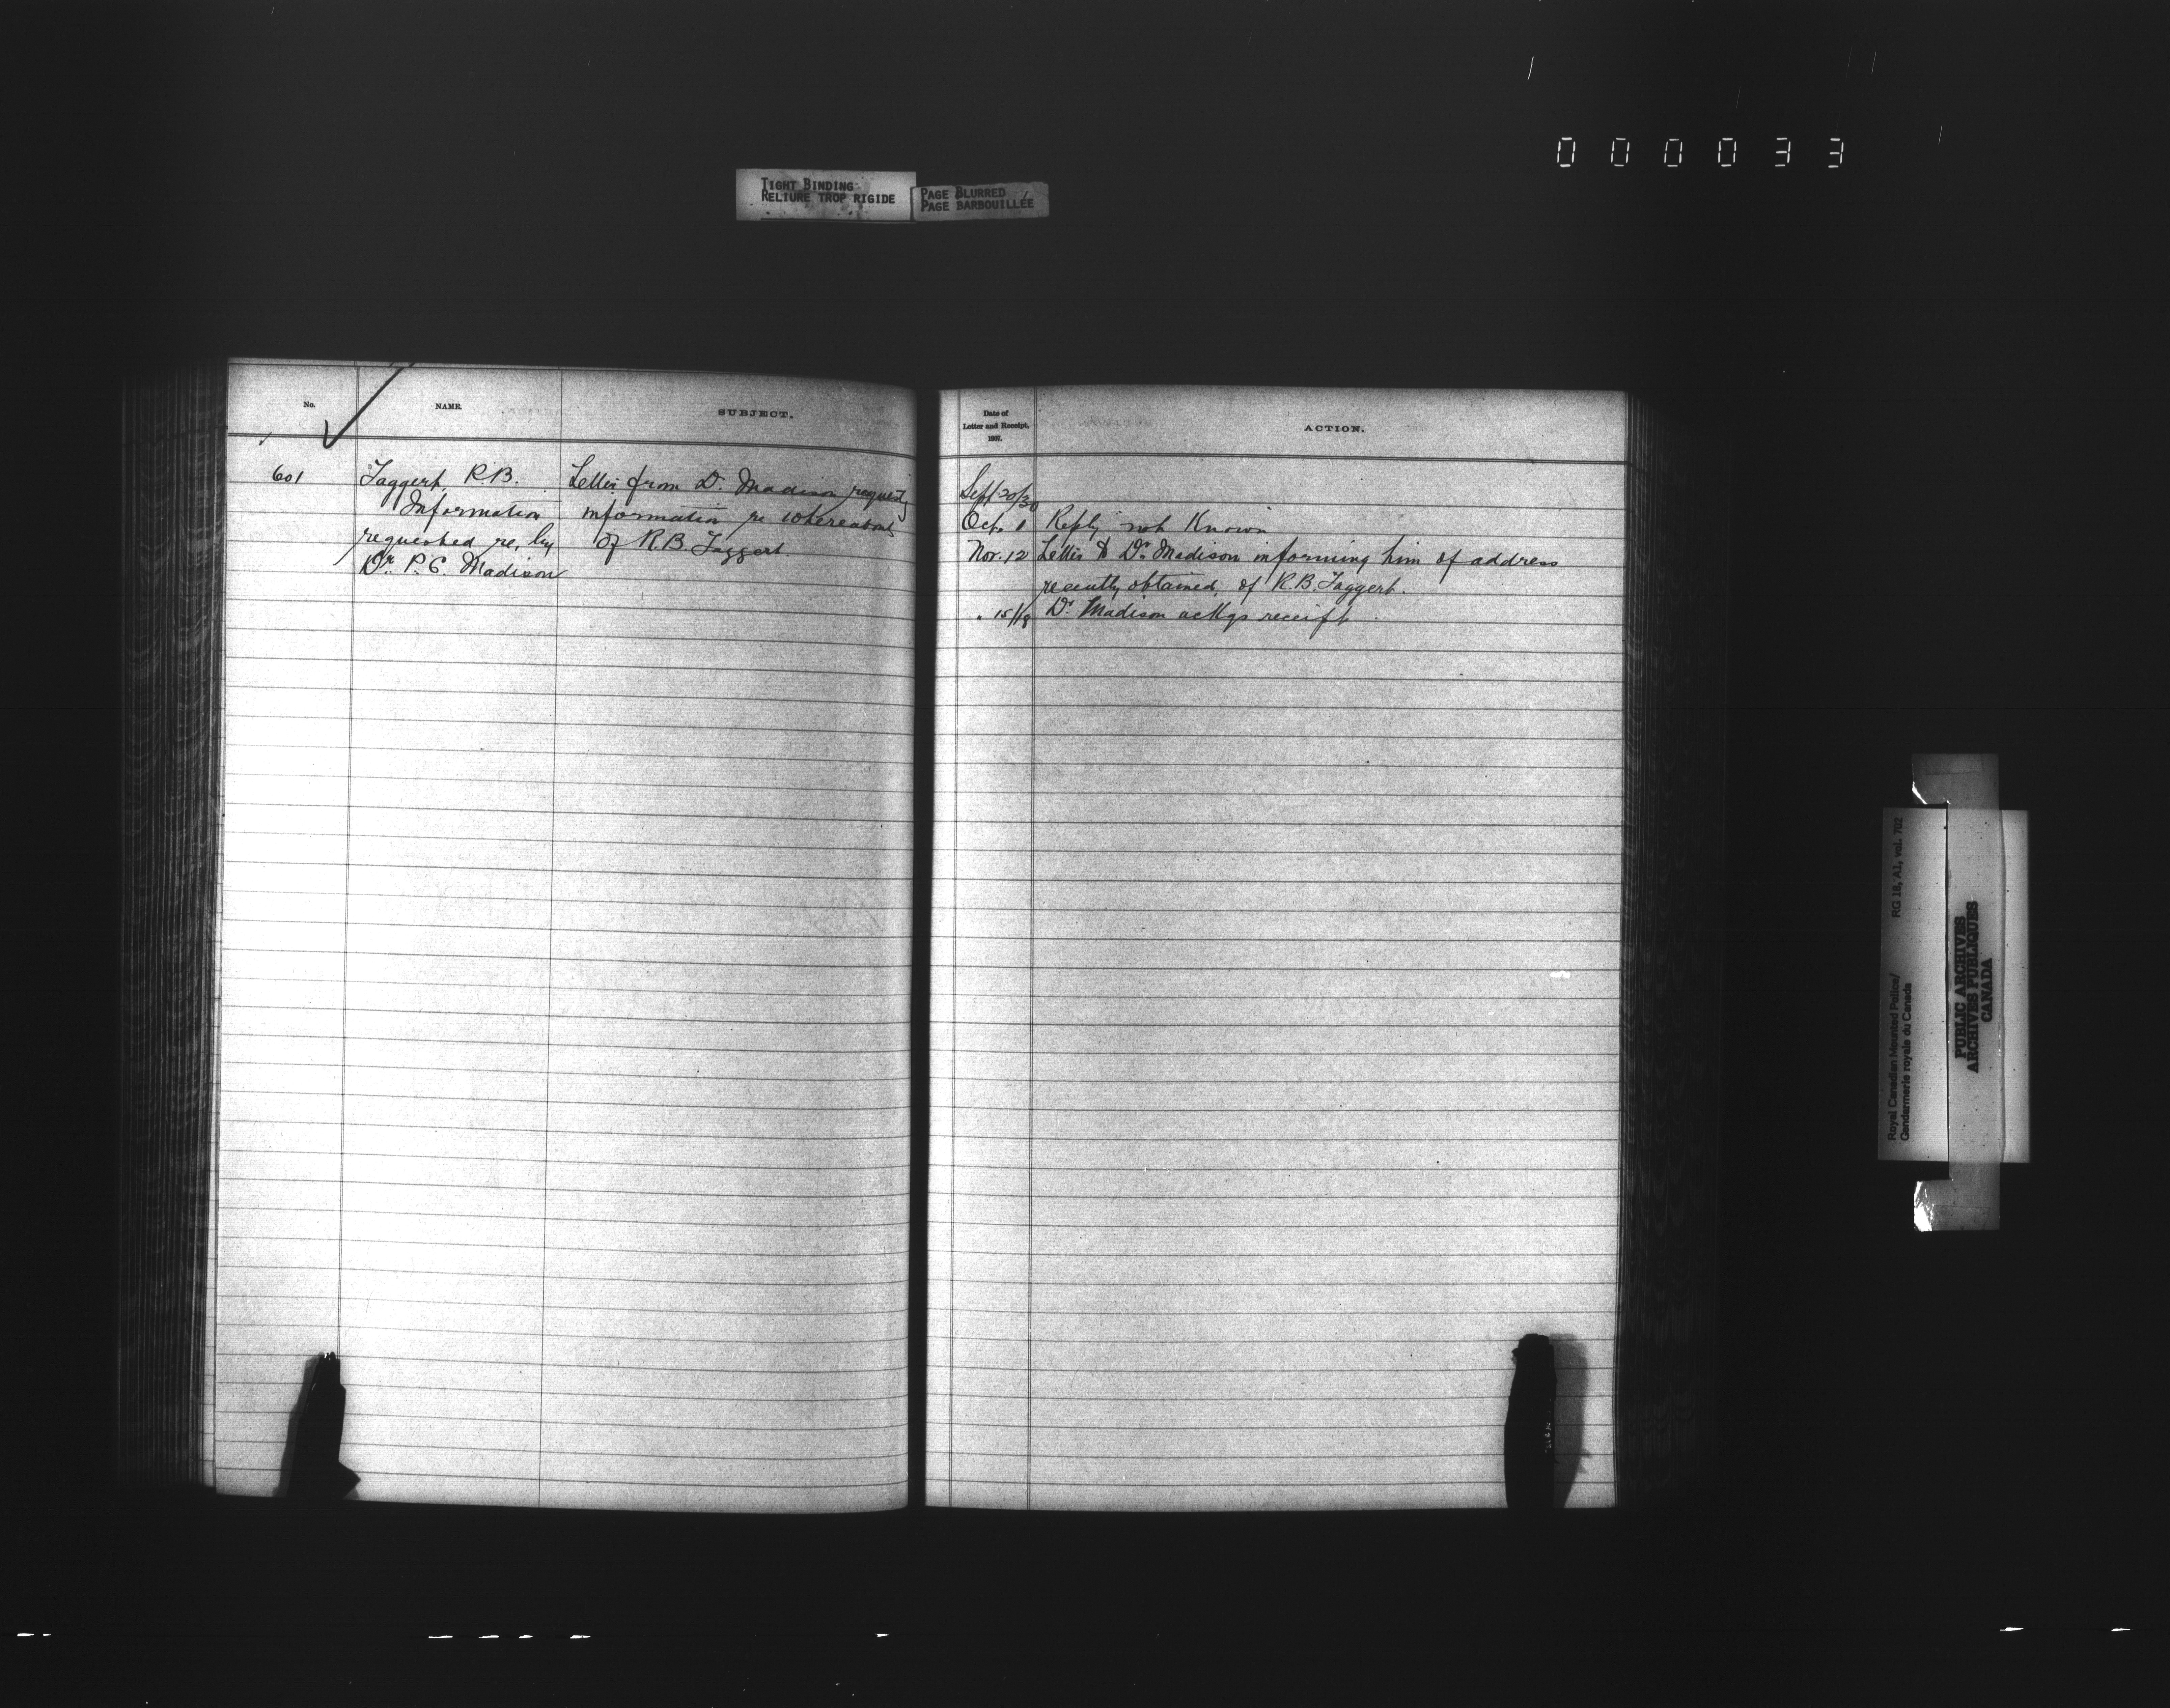 000033
TIGHT BINDING
RELIURE TROP RIGIDE
PAGE BLURRED
PAGE BARBOUILLÉE
No.
NAME.
SUBJECT.
601
Taggert, R.B.
Information
requested re, by
Dr. P. C. Madison
Letter from Dr. Madison requestg
information re whereabouts
of R.B. Taggert.
Date of
Letter and Receipt,
1907.
ACTION.
Sept 20/30
Oct. 1 Reply not Known
Nov. 12 Letter to Dr. Madison informing him of address
recently obtained, of R.B. Taggert.
" 15/18 Dr. Madison ackgs receipt.
Royal Canadian Mounted Police/
Gendarmerie royale du Canada
RG 18, A1, vol. 702
PUBLIC ARCHIVES
ARCHIVES PUBLIQUES
CANADA